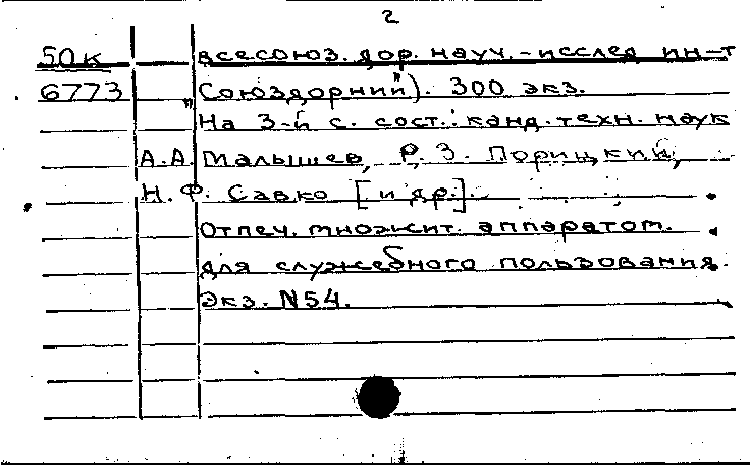 2
50к всесоюз. дор. науч.-исслед ин-т
6773 "Союздорний"). 300 экз.
На 3-й с. сост.: канд. техн. наук
А.А. Малышев, Р.З. Порицкий,
Н.Ф. Савко [и др.].
Отпеч. множит. аппаратом.
для служебного пользования.
Экз. N54.